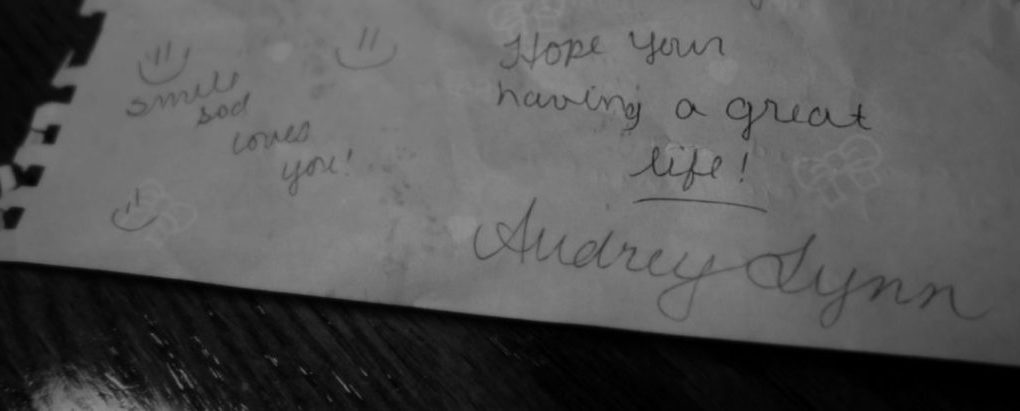 Hope your
having a great
life!
Audrey Lynn
smile
god
loves
you!